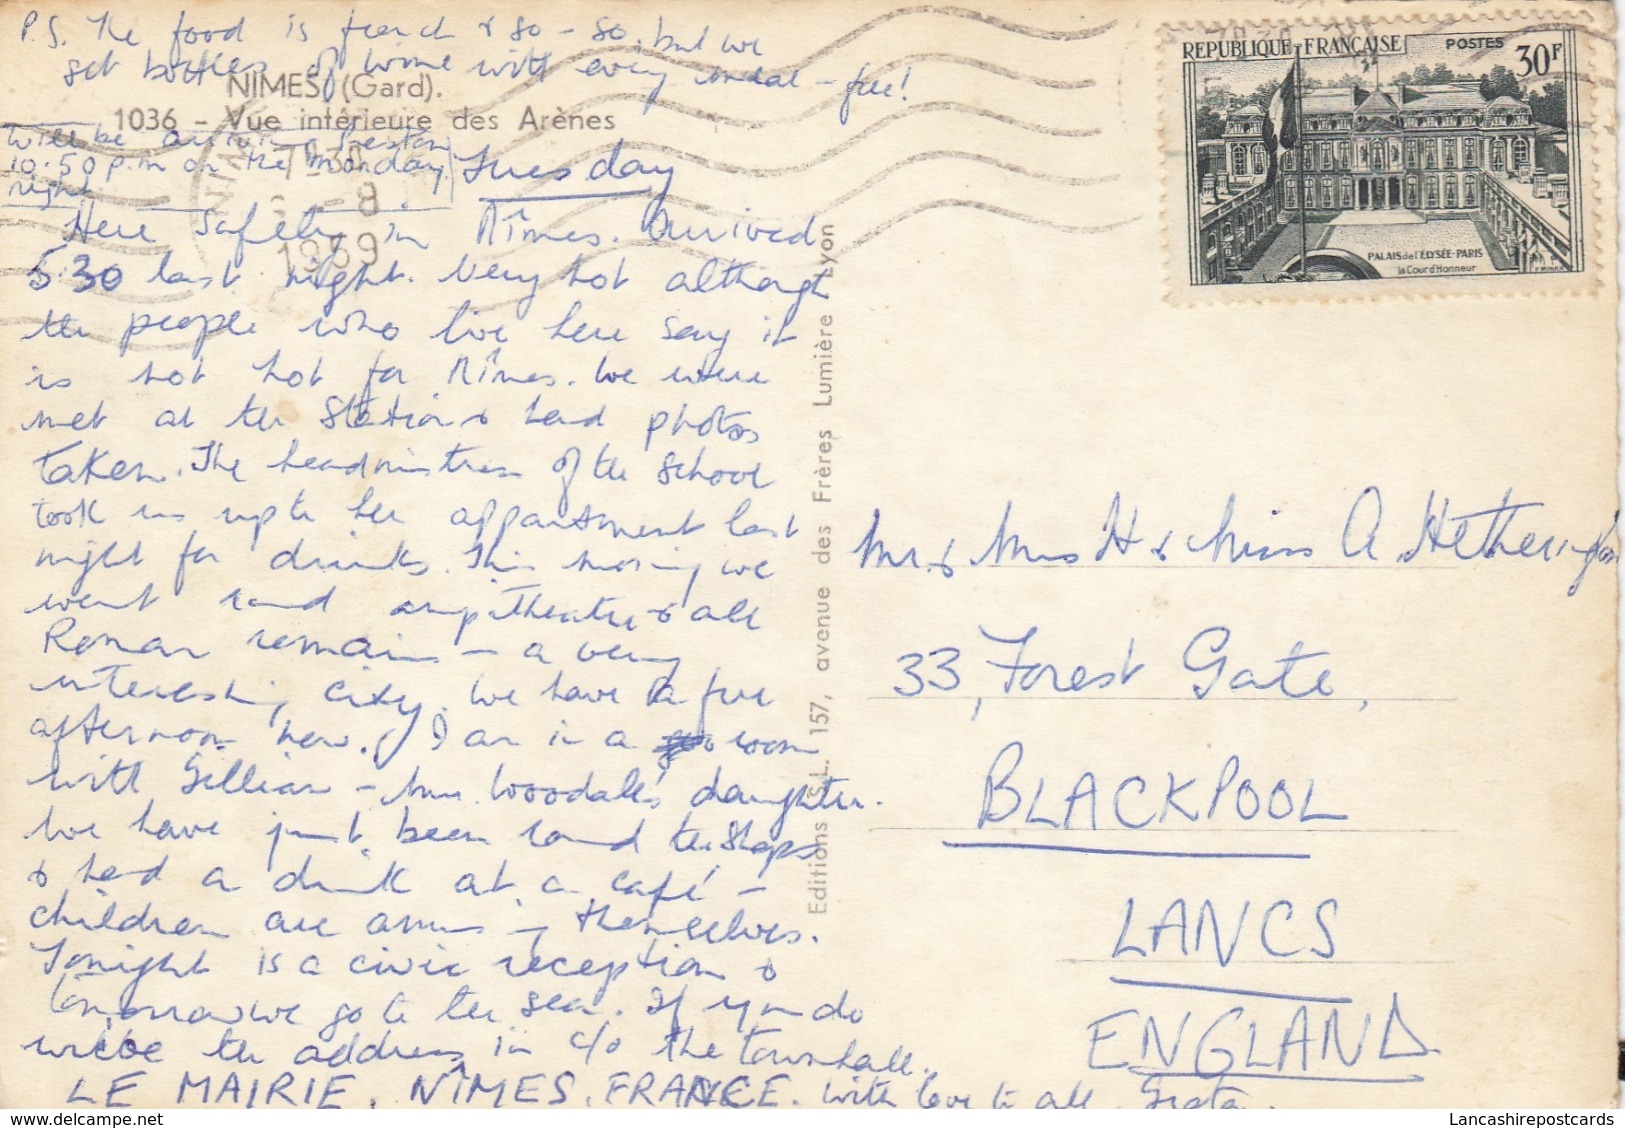 P.S. The food is french & so-so, but we
get bottles of wine with every meal - free!
NIMES (Gard).
1036 - Vue intérieure des Arènes
Will be arriving Preston
10.50 p.m on the Monday
night.
Tuesday
Here safely in Nîmes. Arrived
5.30 last night. Very hot although
the people who live here say it
is not hot for Nîmes. We were
met at the station & had photos
taken. The headmistress of the school
took us up to her appartment last
night for drinks. This morning we
went round ampitheatre & all
Roman remains - a very
interesting city. We have a free
afternoon now. I am in a room
with Gillian - Mr. Woodale's daughter.
We have just been round the shops
& had a drink at a café -
children are amusing themselves.
Tonight is a civic reception &
tomorrow we go to the sea. If you do
write the address is c/o the townhall.
LE MAIRIE, NÎMES. FRANCE. With love to all
NIMES
-8
1959
Editions S.L. 157, avenue des Frères Lumière Lyon
REPUBLIQUE FRANÇAISE POSTES 30F
PALAIS de l'ELYSÉE-PARIS
la Cour d'Honneur
Mr. & Mrs H & Miss A Hetherington
33, Forest Gate,
BLACKPOOL
LANCS
ENGLAND
Lancashirepostcards